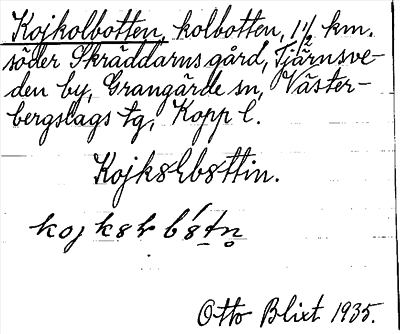 Kojkolbotten, kolbotten, 1½ km.
söder Skräddarns gård, Tjärnsve-
den by, Grangärde sn, Väster-
bergslags tg, Kopp l.
Otto Blixt 1935.